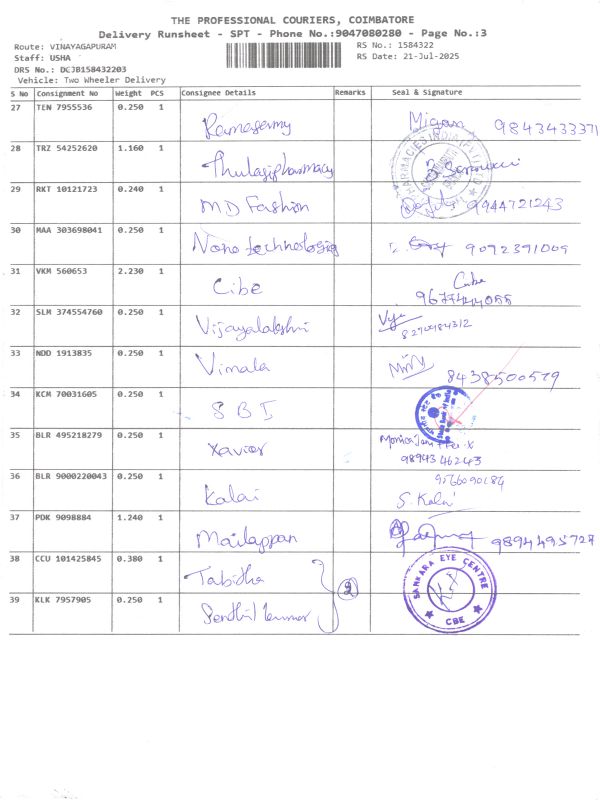 THE PROFESSIONAL COURIERS, COIMBATORE
Delivery Runsheet - SPT - Phone No.:9047080280 - Page No.:3
Route: VINAYAGAPURAM RS No.: 1584322
Staff: USHA RS Date: 21-Jul-2025
DRS No.: DCJB158432203
Vehicle: Two Wheeler Delivery
S No Consignment No Weight PCS Consignee Details Remarks Seal & Signature
27 TEN 7955536 0.250 1 9843433371
28 TRZ 54252620 1.160 1 Thulasipharmacy
PHARMACIES INDIA
29 RKT 10121723 0.240 1 MD Fashion 9944721243
30 MAA 303698041 0.250 1 9092391009
31 VKM 560653 2.230 1 Cibe Cibe
32 SLM 374554760 0.250 1 Vijayalakshmi
33 NDD 1913835 0.250 1 Vimala 8438500579
34 KCM 70031605 0.250 1 SBI
State Bank of India
35 BLR 495218279 0.250 1 Xavior
9894346243
36 BLR 9000220043 0.250 1 Kalai 9566090184
S. Kalai
37 PDK 9098884 1.240 1 Mailappan 9894495728
38 CCU 101425845 0.380 1 Tabitha 2
SANKARA EYE CENTRE
CBE
39 KLK 7957905 0.250 1 Senthil kumar